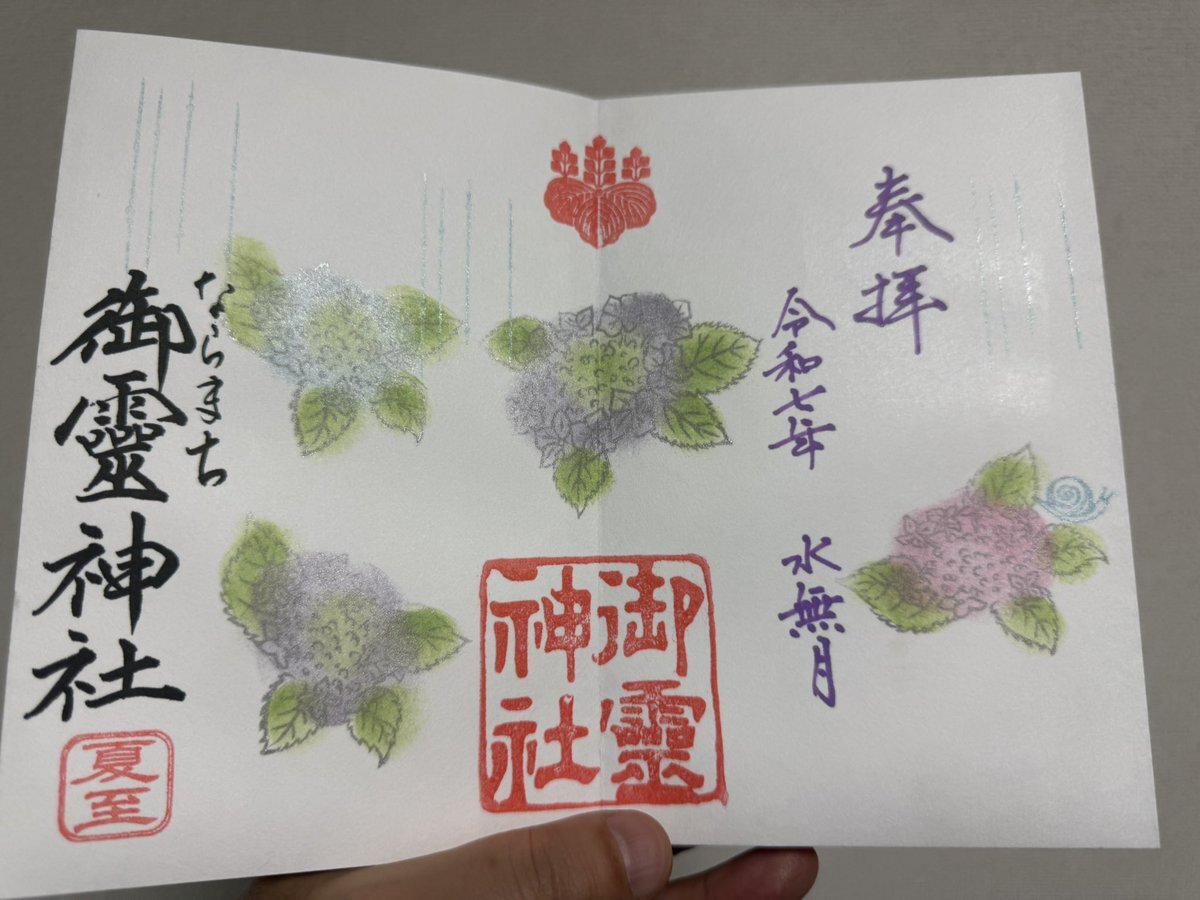 奉拝
令和七年 水無月
御靈神社
ならまち
御靈神社
夏至